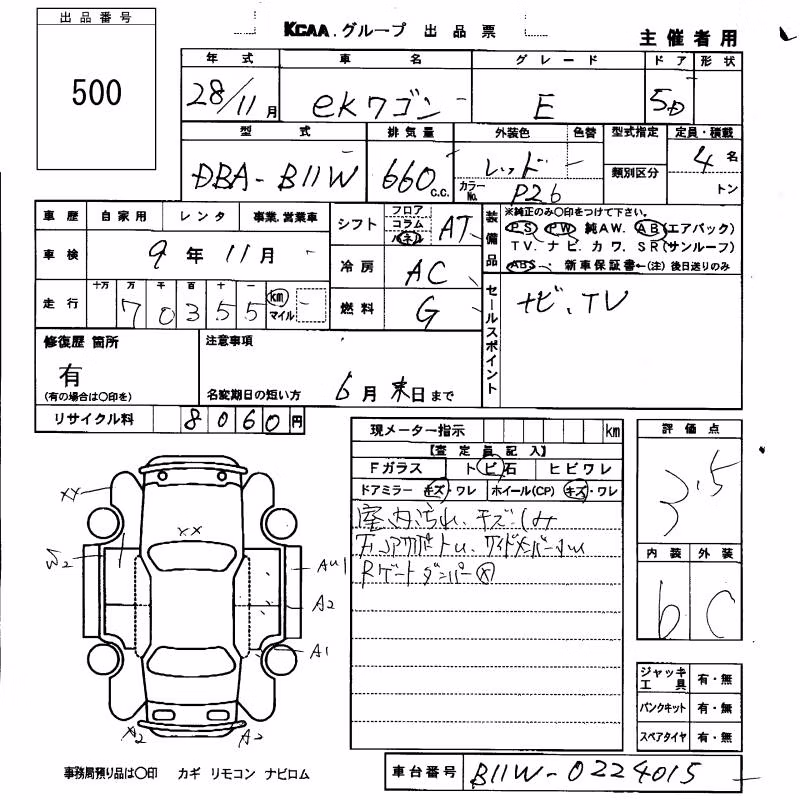 出品番号
500
KCAA.グループ 出品票
主催者用
年式 車名 グレード ドア 形状
28/11月 ekワゴン E 5D
型式 排気量 外装色 色替 型式指定 定員・積載
DBA-B11W 660c.c. レッド 4名
カラーNo. P26 類別区分 トン
車歴 自家用 レンタ 事業.営業車
シフト フロア コラム パネル AT
装備品 ※純正のみ○印をつけて下さい。
PS PW 純AW. AB(エアバック)
TV. ナビ. カワ. SR(サンルーフ)
ABS 新車保証書←(注)後日送りのみ
車検 9年11月
冷房 AC
走行 十万 万 千 百 十 一
70355 km マイル
燃料 G
セールスポイント ナビ、TV
修復歴 箇所 注意事項
有
(有の場合は○印を) 名変期日の短い方 6月末日まで
リサイクル料 8060円
現メーター指示 km
評価点
【査定員記入】
3.5
Fガラス トビ石 ヒビワレ
ドアミラー キズ・ワレ ホイール(CP) キズ・ワレ
室内汚れ、キズ
Rゲートダンパー
内装 外装
b C
XX
XX
W2
AU1
A2
A1
A2 A2
ジャッキ 工具 有・無
パンクキット 有・無
スペアタイヤ 有・無
事務局預り品は○印 カギ リモコン ナビロム
車台番号 B11W-0224015